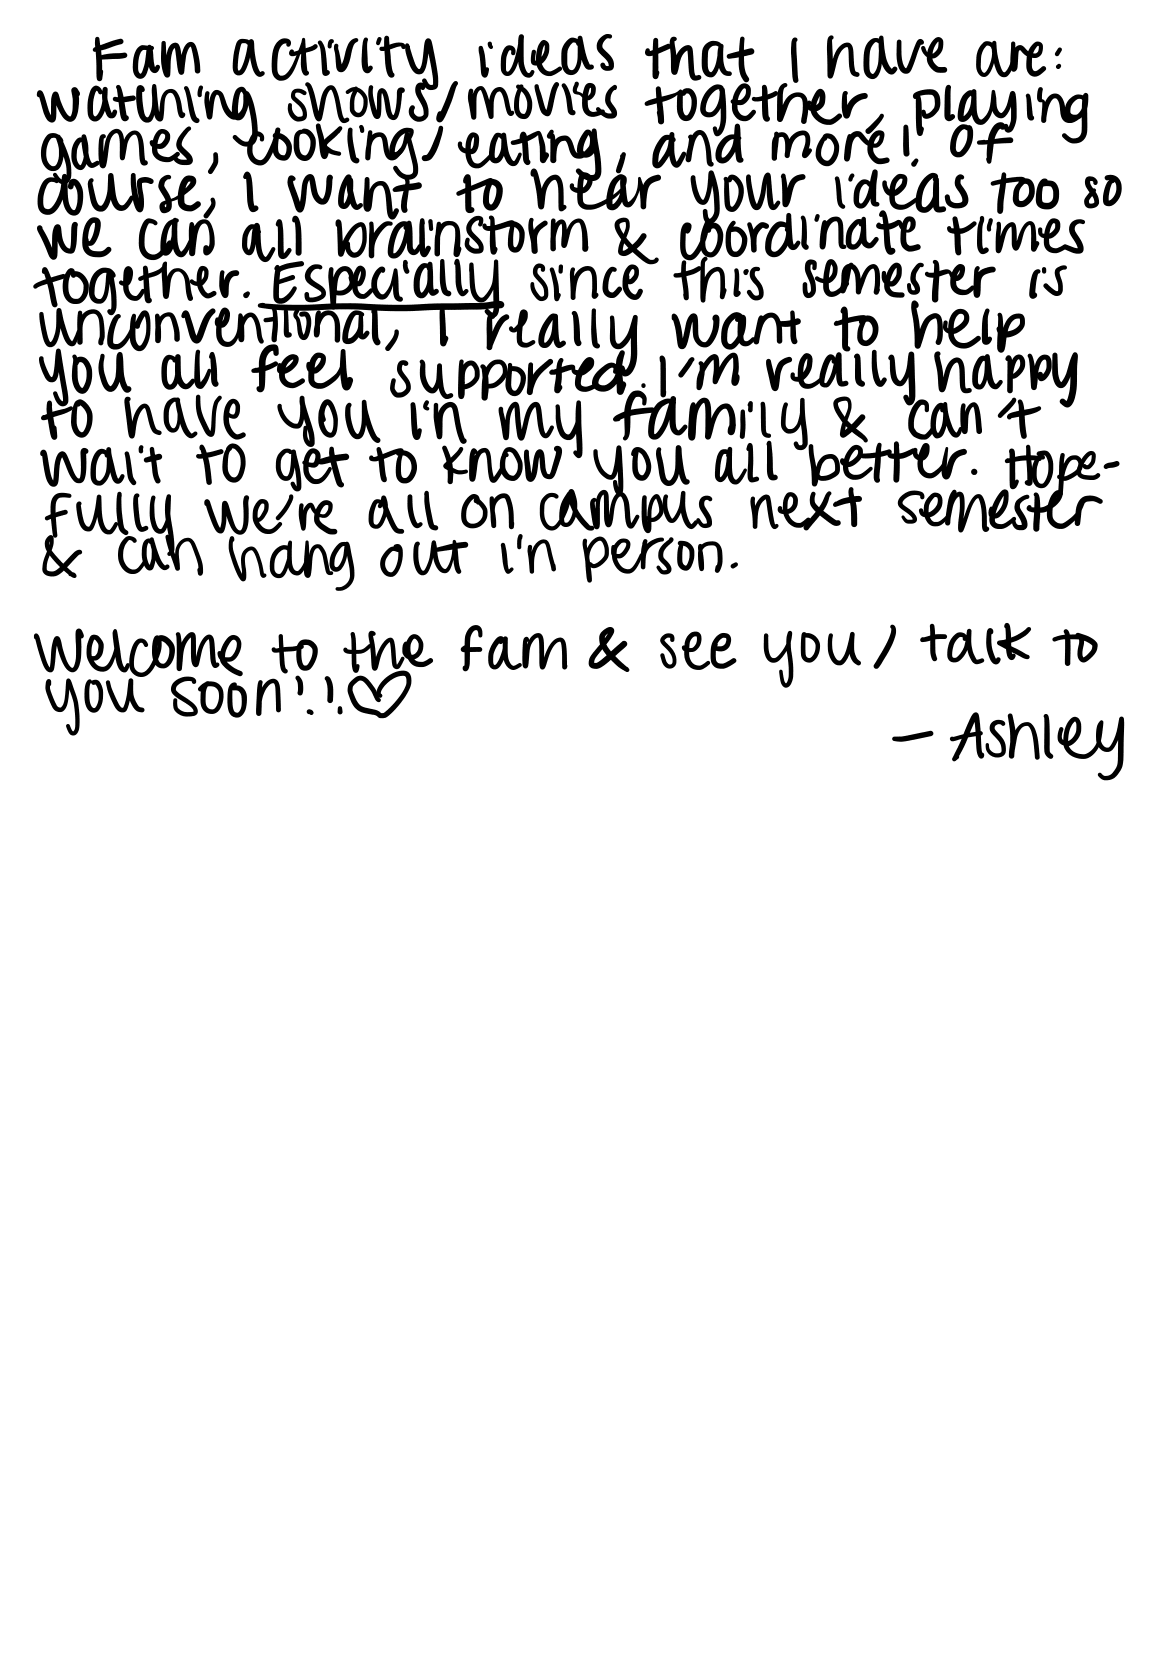 Fam activity ideas that I have are:
watching shows/movies together, playing
games, cooking/eating, and more! Of
course, I want to hear your ideas too so
we can all brainstorm & coordinate times
together. Especially since this semester is
unconventional, I really want to help
you all feel supported. I'm really happy
to have you in my family & can't
wait to get to know you all better. Hope-
fully we're all on campus next semester
& can hang out in person.
Welcome to the fam & see you/talk to
you soon!!♡
- Ashley